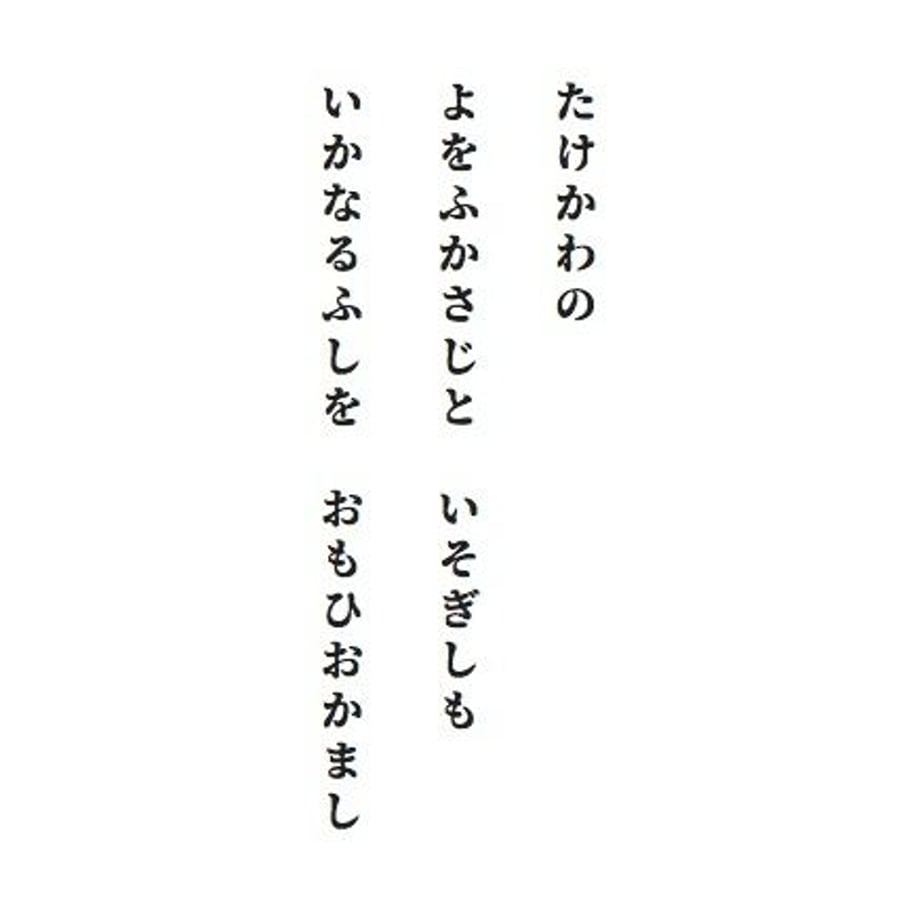 たけかわの
よをふかさじと　いそぎしも
いかなるふしを　おもひおかまし